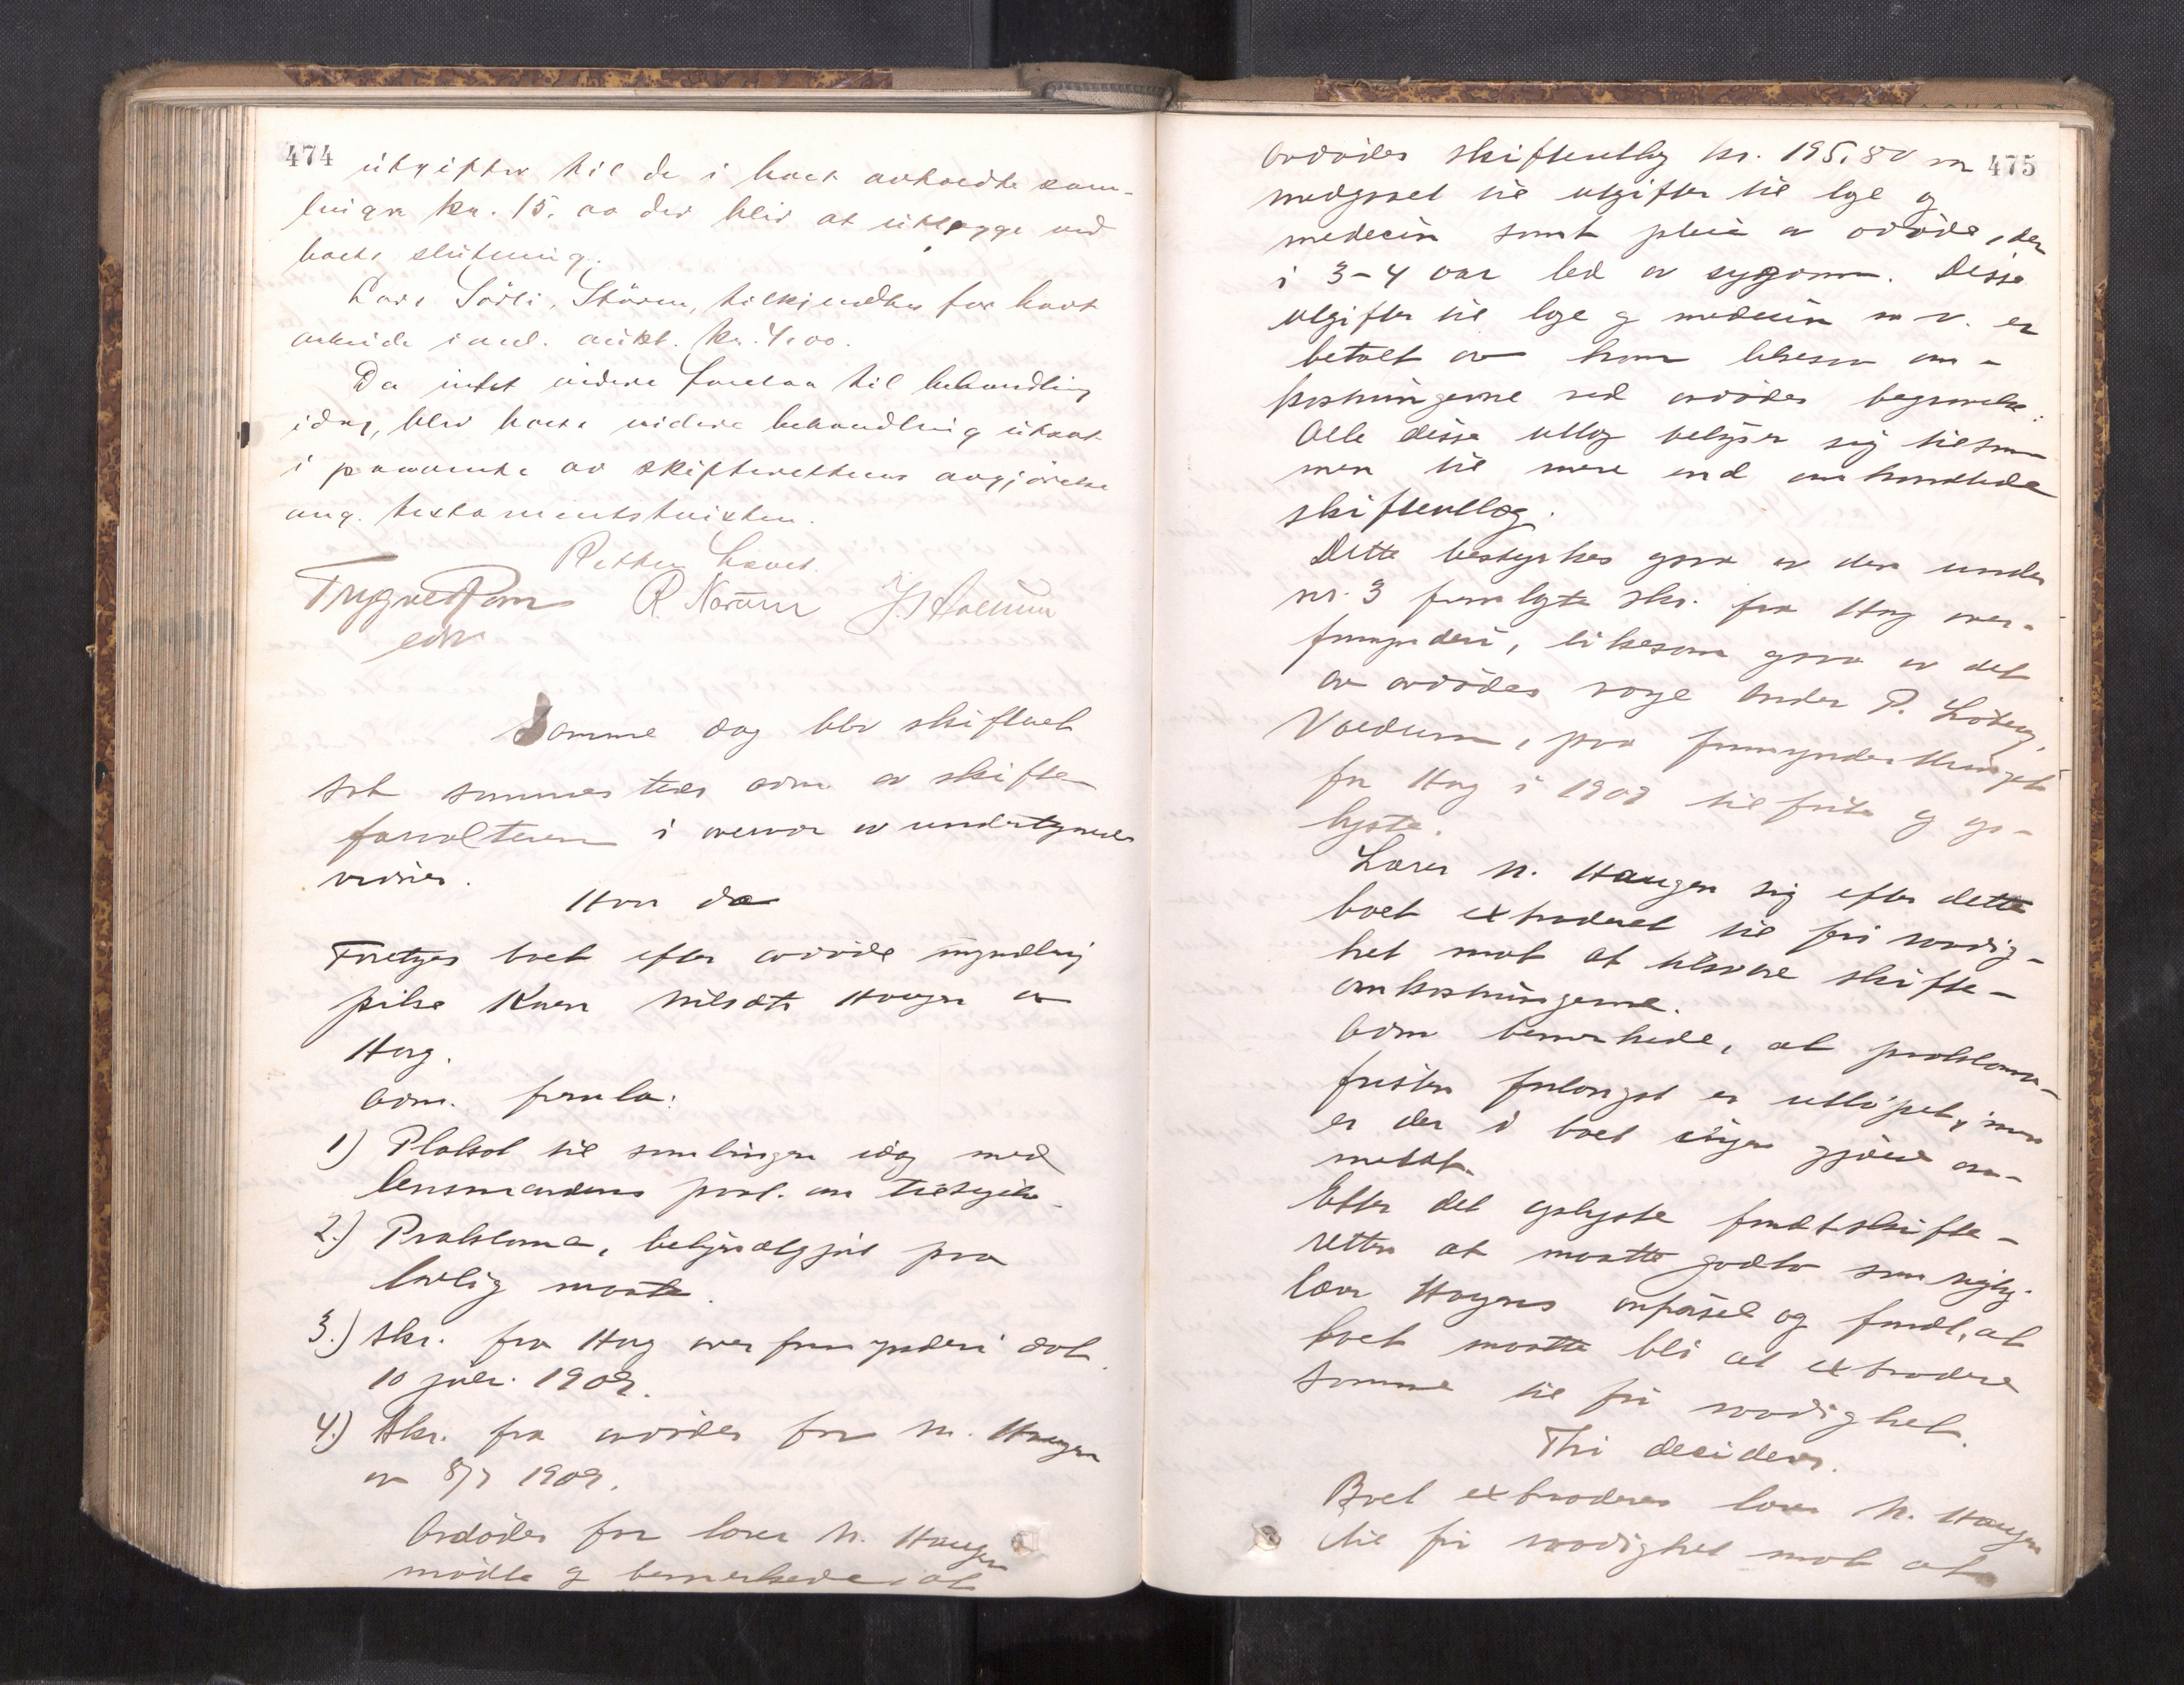 474
utgifter til de i boet avholdte sam-
linger kr. 15.00 der blir at utlægge ved
boets slutning.
Lars Sørli, Støren, tilkjendtes for havt
arbeide i anl. aukt. kr. 4.00.
Da intet videre forelaa til behandling
idag, blev boets videre behandling utsat
i paavente av skifterettens avgjørelse
ang. testamentstvisten.
Retten hævet.
Trygve
R. Norum
edv
Samme dag blev skifteret
sat sammesteds adm av skifte
forvalteren i overvær av undertegnede
vidner.
Hvor da
Foretoges boet efter avdøde myndling
pike Karen Nilsdtr Haugen av
Horg.
Adm. fremla:
1) Plakat til samlingen idag med
lensmandens paat. om
2.) Proklama, bekjendtgjort paa
lovlig maate.
3.) Skr. fra Horg overformynderi dat.
10 juli. 1909.
4.) Skr. fra avdødes far N. Haugen
av 8/7 1909.
Avdødes far lærer N. Haugen
mødte og bemerkede, at
475
avdødes skifteutlæg kr. 195,80 var
medgaaet til utgifter til læge og
medecin samt pleie av avdøde, der
i 3-4 aar led av sygdom. Disse
utgifter til læge og medecin m v. er
betalt av ham likesom om-
kostningerne ved avdødes begravelse.
Alle disse utlæg beløper sig tilsam
men til mere end omhandlede
skifteutlæg.
Dette bestyrkes ogsaa av den under
nr. 3 fremlagte skr. fra Horg over-
formynderi, likesom ogsaa av det
av avdødes værge Anders P. Løberg,
Valdum, paa formynderthinget
for Horg i 1909 tilførte og op-
lyste.
Lærer N. Haugen sig efter dette
boet extraderet til fri raadig-
het mot at tilsvare skifte-
omkostningerne.
Adm bemerkede, at proklama-
fristen forlængst er utløpet, men
er der i boet ingen gjæld an-
meldt.
Efter det oplyste fandt skifte-
retten at maatte godta som rigtig
lærer Haugens anførsel og fandt, at
boet maatte bli at extradere
samme til fri raadighet.
Thi decideres.
Boet extraderes lærer N. Haugen
til fri raadighet mot at